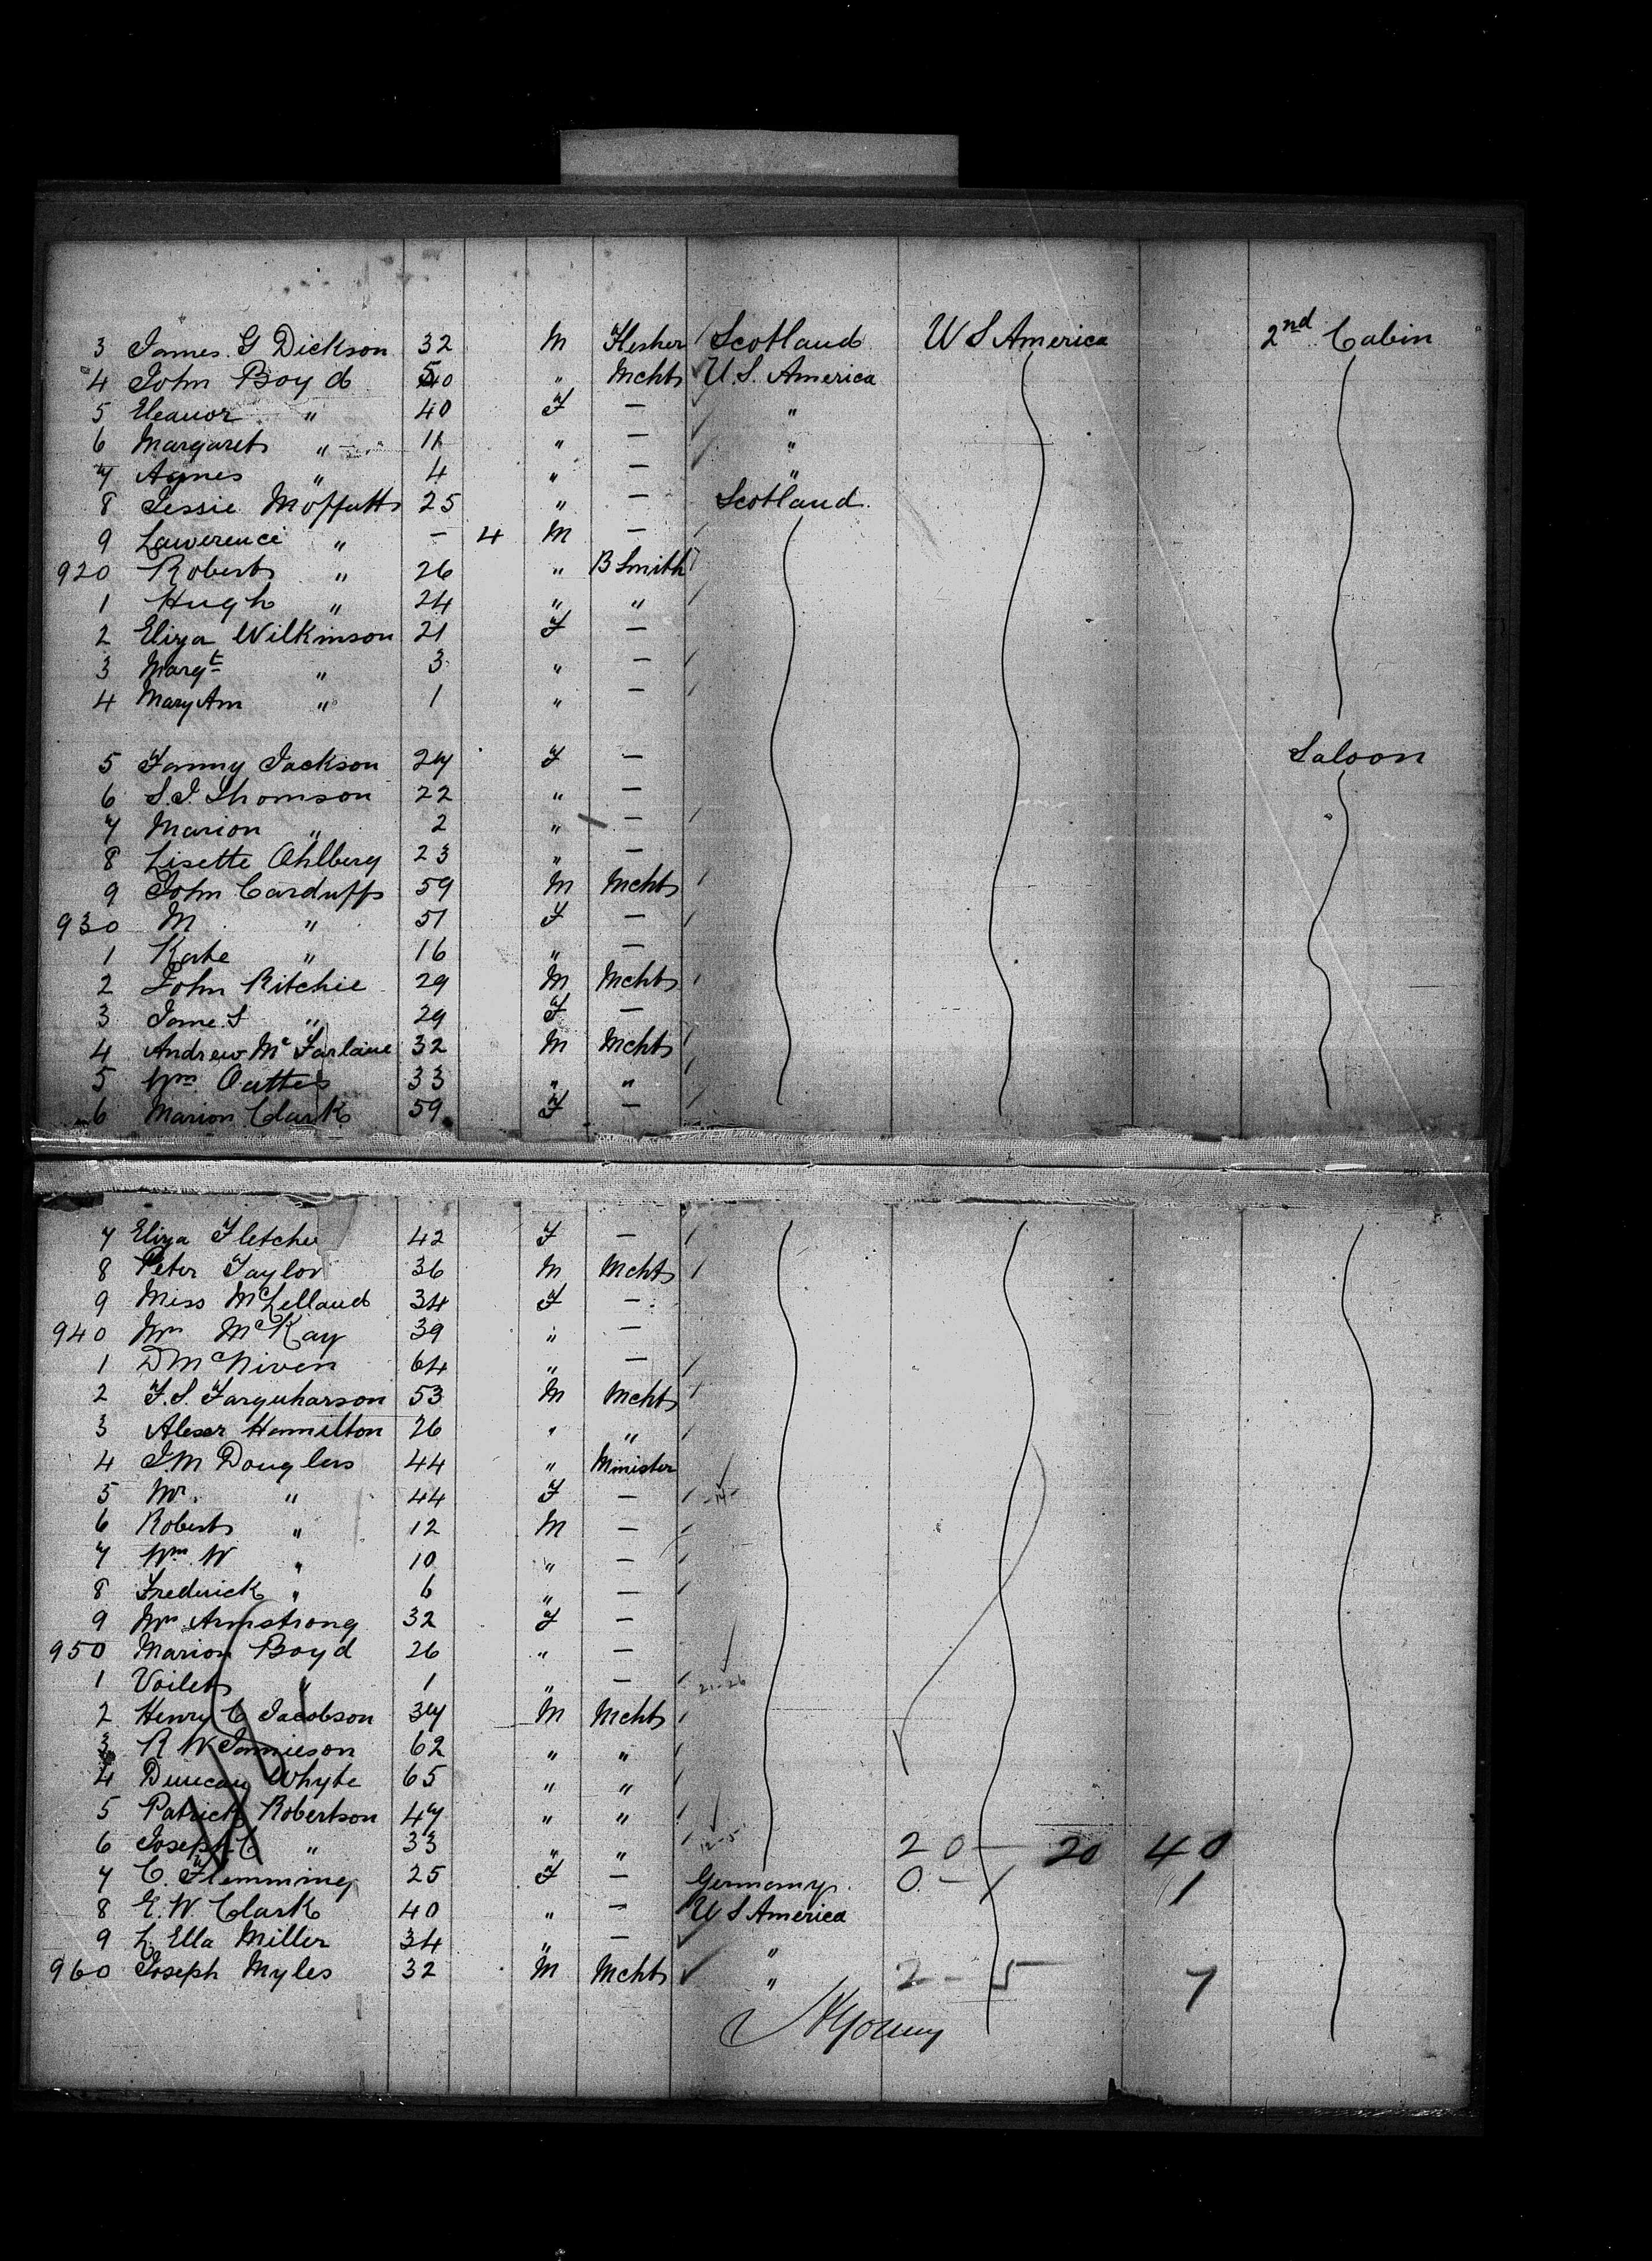 3 James. G Dickson 32 M Flesher Scotland U S America 2nd Cabin
4 John Boyd 50 " Mcht U.S. America
5 Eleanor " 40 F — "
6 Margaret " 11 " — "
7 Agnes " 4 " — "
8 Jessie Moffatt 25 " — Scotland
9 Lawerence " — 4 M —
920 Robert " 26 " B Smith
1 Hugh " 24 " "
2 Eliza Wilkinson 21 F —
3 Margt " 3 " —
4 Mary Ann " 1 " —
5 Fanny Jackson 27 F — Saloon
6 S.J. Thomson 22 " —
7 Marion " 2 " —
8 Lisette Ohlberg 23 " —
9 John Carduff 59 M Mcht
930 M " 51 F —
1 Kate " 16 " —
2 John Ritchie 29 M Mcht
3 Jane. S " 29 F —
4 Andrew Mc Farlane 32 M Mcht
5 Wm Oattes 33 " "
6 Marion Clark 59 F —
7 Eliza Fletcher 42 F —
8 Peter Taylor 36 M Mcht
9 Miss McLelland 34 F —
940 Mrs McKay 39 " —
1 D McNiven 64 " —
2 F.S. Farquharson 53 M Mcht
3 Alexr Hamilton 26 " "
4 J M Douglas 44 " Minister
5 Mrs. " 44 F —
6 Robert " 12 M —
7 Wm W " 10 " —
8 Frederick " 6 " —
9 Mrs Armstrong 32 F —
950 Marion Boyd 26 " —
1 Voilet " 1 " — 21-26
2 Henry C Jacobson 37 M Mcht
3 R W Jamieson 62 " "
4 Duncan Whyte 65 " "
5 Patrick Robertson 47 " "
6 Joseph C " 33 " " 12-5 20 — 20 40
7 C. Flemming 25 F — Germany 0 — 1 1
8 E. W Clark 40 " — U S America
9 L. Ella Miller 34 " — "
960 Joseph Myles 32 M Mcht " 2 - 5 7
Young